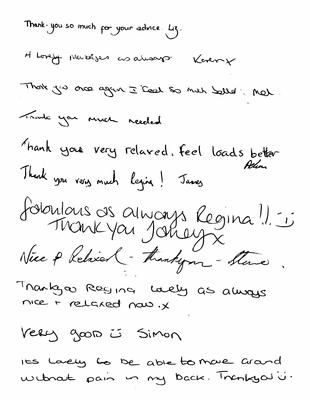 Thank-you so much for your advice Liz.
A lovely as always Karen x
Thank you once again I feel so much better. Mel
Thank you much needed
Thank you very relaxed, feel loads better
Thank you very much Regina! James
fabulous as always Regina!! :)
Thank you x
Nice & Relaxed - Thankyou - Steve.
Thankyou Regina lovely as always
nice + relaxed now. x
Very good :) Simon
its lovely to be able to move around
without pain in my back. Thankyou :).